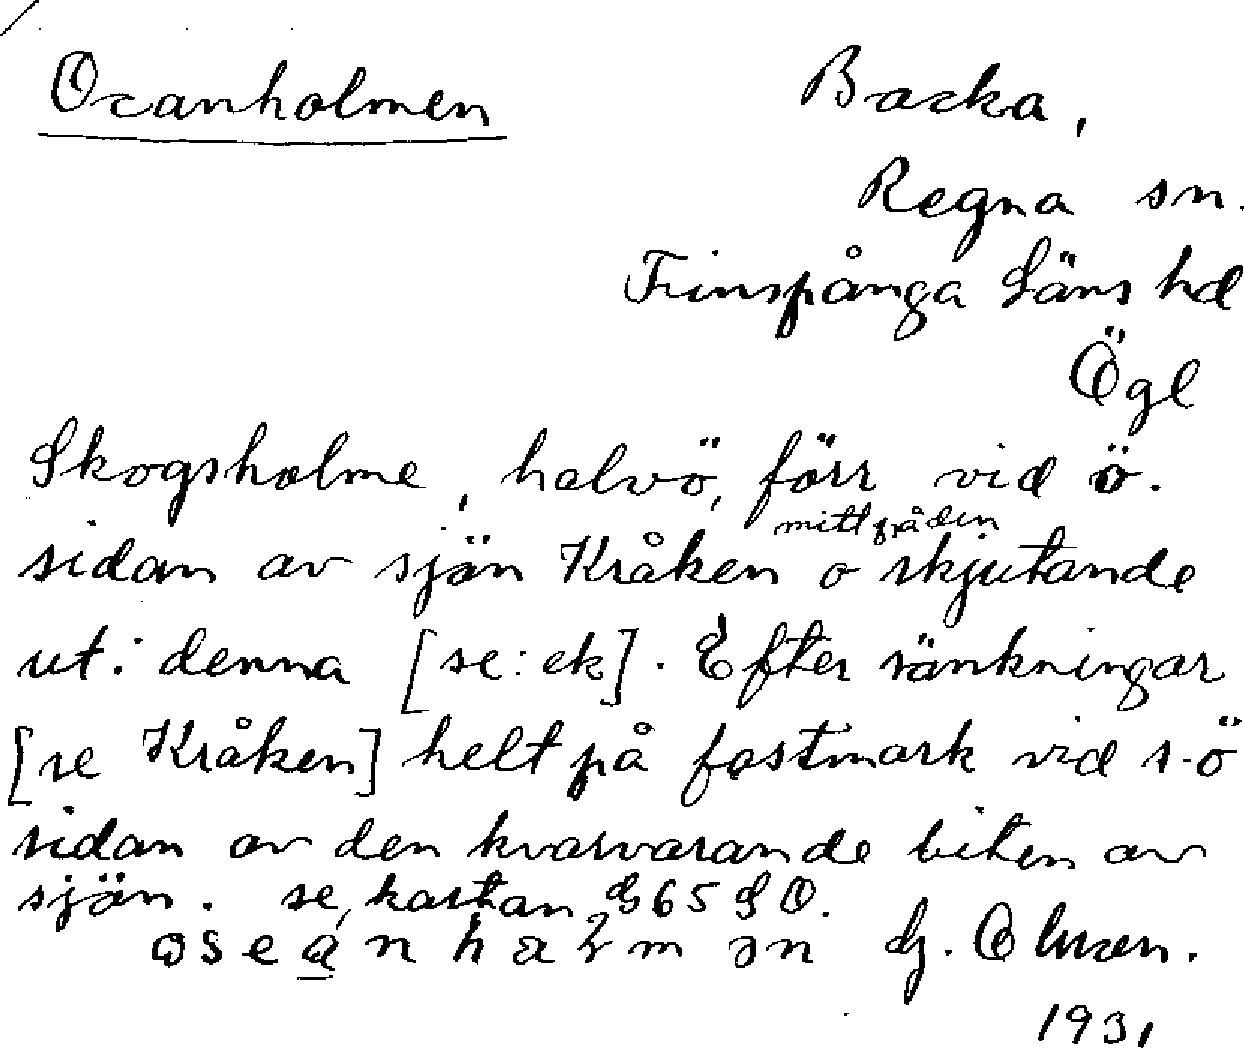 Oceanholmen
Backa,
Regna sn.
Finspånga Läns hd
Ögl
Skogsholme, halvö, förr vid ö.
mitt på den
sidan av sjön Kråken o skjutande
ut i denna [se: ek]. Efter sänkningar
[se Kråken] helt på fastmark vid s-ö
sidan av den kvarvarande biten av
sjön. se, kartan G65 S O.
G. Olsson.
1931